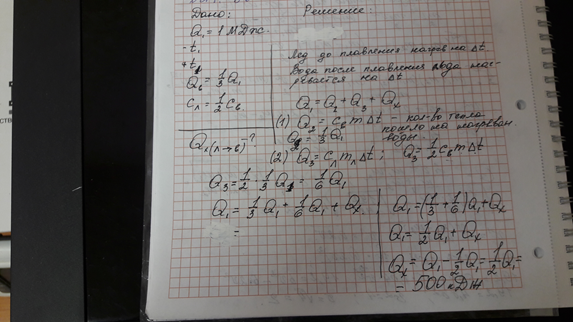 Дано:
Решение:
Q₁ = 1 МДж.
- t₁
+ t₁
Q_в = 1/3 Q₁
c_л = 1/2 c_в
Q_x(л→в) - ?
Лед до плавления нагрев на Δt
Вода после плавления льда наг-
ревается на Δt
Q₁ = Q₂ + Q₃ + Q_x
(1) Q₂ = c_в m Δt - кол-во тепла
Q₂ = 1/3 Q₁ пошло на нагреван
воды.
(2) Q₃ = c_л m_л Δt ; Q₃ = 1/2 c_в m Δt
Q₃ = 1/2 · 1/3 Q₁ = 1/6 Q₁
Q₁ = 1/3 Q₁ + 1/6 Q₁ + Q_x
=
Q₁ = (1/3 + 1/6) Q₁ + Q_x
Q₁ = 1/2 Q₁ + Q_x
Q_x = Q₁ - 1/2 Q₁ = 1/2 Q₁ =
= 500 кДж